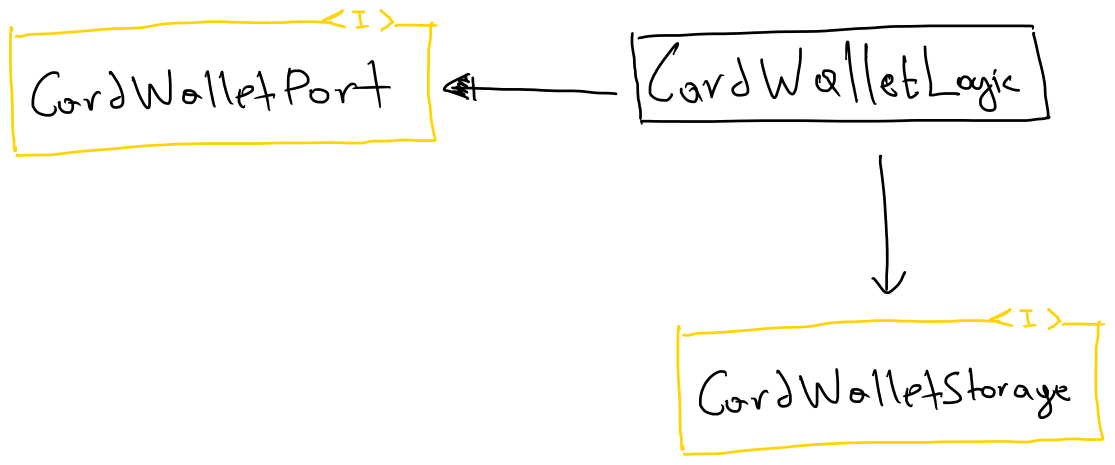 <I>
CardWalletPort
CardWalletLogic
<I>
CardWalletStorage